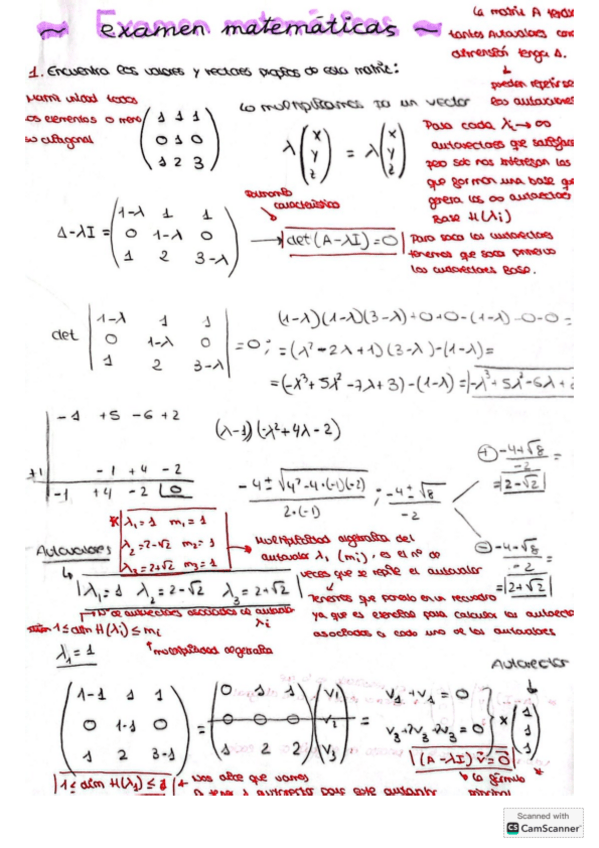 ~ Examen matemáticas ~
La matriz A tendrá
tantos Autovalores como
dimensión tenga A.
↓
pueden repetirse
los autovalores
1. Encuentra los valores y vectores propios de esta matriz:
los elementos o menos
su diagonal
(1 1 1
0 1 0
1 2 3)
Lo multiplicamos x a un vector
λ(x y z) = λ(x y z)
Para cada λi → ∞
autovectores que satisfagan
pero solo nos interesan los
que forman una base que
genera los ∞ autovectores
Base H(λi)
característico
A-λI = (1-λ 1 1
0 1-λ 0
1 2 3-λ)
→ det(A-λI)=0
Para sacar los autovectores
tenemos que sacar primero
los autovectores Base.
det |1-λ 1 1
0 1-λ 0
1 2 3-λ| = 0;
(1-λ)(1-λ)(3-λ)+0+0-(1-λ)-0-0=
=(λ²-2λ+1)(3-λ)-(1-λ)=
=(-λ³+5λ²-7λ+3)-(1-λ)=-λ³+5λ²-6λ+2
-1 +5 -6 +2
+1 -1 +4 -2
-1 +4 -2 0
(λ-1)(-λ²+4λ-2)
-4±√4²-4·(-1)(-2) / 2·(-1) ; -4±√8 / -2
⊕ -4+√8 / -2 =
=2-√2
⊖ -4-√8 / -2 =
=2+√2
* λ1=1 m1=1
λ2=2-√2 m2=1
λ3=2+√2 m3=1
Autovalores
λ1=1 λ2=2-√2 λ3=2+√2
Multiplicidad algebraica del
autovalor λi (mi), es el nº de
veces que se repite el autovalor
Tenemos que ponerlo en un recuadro
ya que es esencial para calcular los autovectores
asociados a cada uno de los autovalores
Nº de autovectores asociados de autovalor
λi
1≤dim H(λi)≤mi
↑multiplicidad algebraica
λ1=1
Autovector
↓
(1-1 1 1
0 1-1 0
1 2 3-1)
=
(0 1 1
0 0 0
1 2 2)
(v1
v2
v3)
=
v2+v3=0
(1
1
1)
(A-λI)v⃗=0⃗
↳ La fórmula
principal
1≤dim H(λ1)≤1
← Nos dice que vamos
a tener 1 autovector para este autovalor
Scanned with
CS CamScanner